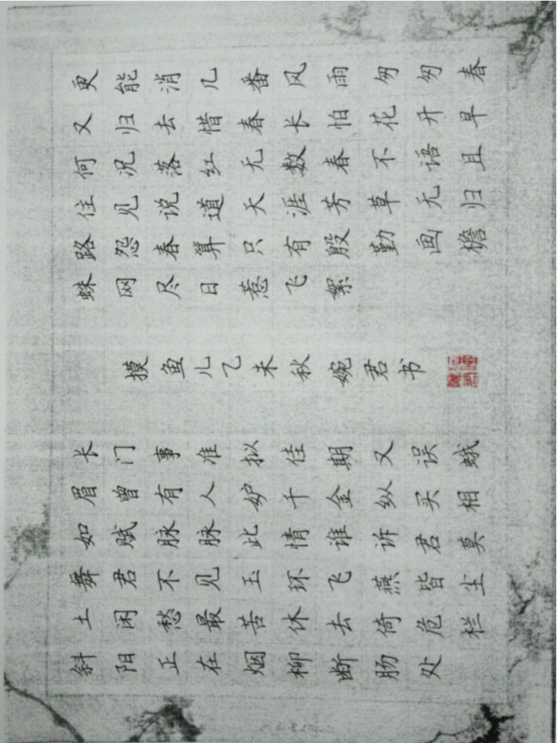 更能消几番风雨匆匆春
又归去惜春长怕花开早
何况落红无数春不语且
住见说道天涯芳草无归
路怨春算只有殷勤画檐
蛛网尽日惹飞絮
摸鱼儿乙未秋婉君书
长门事准拟佳期又误蛾
眉曾有人妒千金纵买相
如赋脉脉此情谁诉君莫
舞君不见玉环飞燕皆尘
土闲愁最苦休去倚危栏
斜阳正在烟柳断肠处